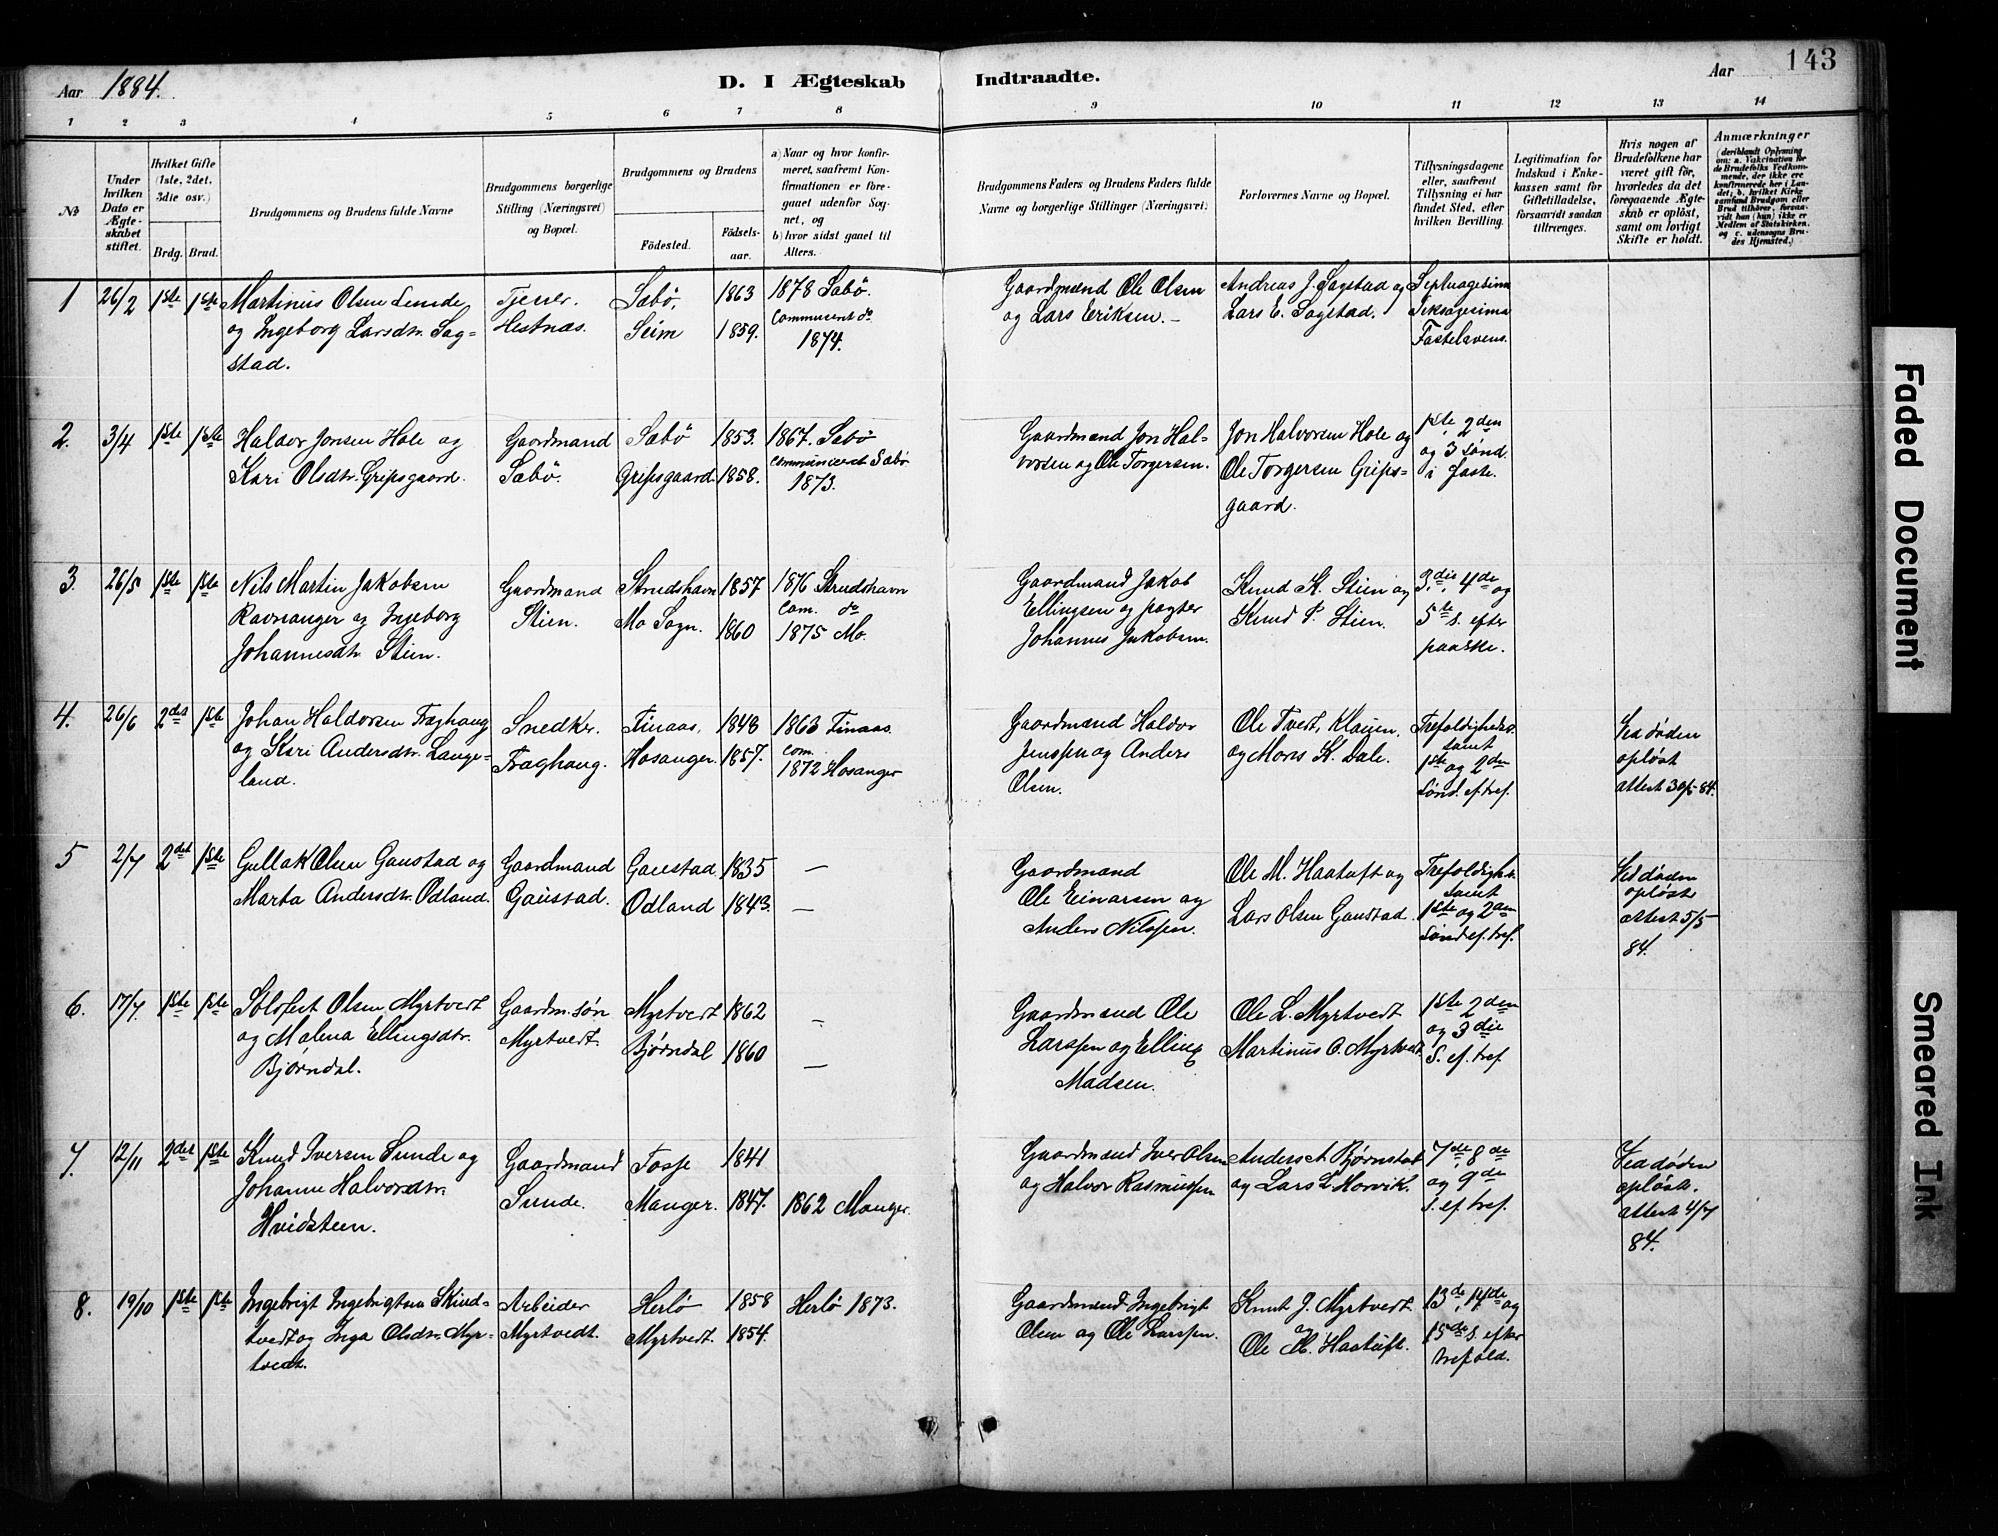 Aar 1884.
D. I Ægteskab Indtraadte.
Aar
143
1 2 3 4 5 6 7 8 9 10 11 12 13 14
№
Under hvilken Dato er Ægteskabet stiftet.
Hvilket Gifte (1ste, 2det, 3die osv.)
Brdg. Brud.
Brudgommens og Brudens fulde Navne
Brudgommens borgerlige Stilling (Næringsvei) og Bopæl.
Brudgommens og Brudens
Födested.
Födselsaar.
a) Naar og hvor konfirmeret, saafremt Konfirmationen er foregaaet udenfor Sognet, og
b) hvor sidst gaaet til Alters.
Brudgommens Faders og Brudens Faders fulde Navne og borgerlige Stillinger (Næringsvei)
Forlovernes Navne og Bopæl.
Tillysningsdagene eller, saafremt Tillysning ei har fundet Sted, efter hvilken Bevilling.
Legitimation for Indskud i Enkekassen samt for Giftetilladelse, forsaavidt saadan tiltrænges.
Hvis nogen af Brudefolkene har været gift för, hvorledes da det foregaaende Ægteskab er oplöst, samt om lovligt Skifte er holdt.
Anmærkninger
(deriblandt Oplysning om: a. Vakcination for de Brudefolks Vedkommende, der ikke ere konfirmerede her i Landet; b. hvilket Kirkesamfund Brudgom eller Brud tilhörer, forsaavidt han (hun) ikke er Medlem af Statskirken, og c. udensogns Brudes Hjemsted.)
1 26/2 1ste 1ste Martinus Olsen Lunde
og Ingeborg Larsdtr. Sag=
stad.
Tjener.
Hestnæs.
Sæbö,
Seim
1863
1859.
1878 Sæbö.
Communicent do
1874.
Gaardmænd Ole Olsen
og Lars Eriksen.
Andreas J. Sagstad og
Lars E. Sagstad.
Septuagesima
Seksagesima
Fastelavens.
2. 3/4 1ste 1ste Haldor Jonsen Hole og
Kari Olsdtr. Gripsgaard.
Gaardmand
Sæbö.
Sæbö
Gripsgaard.
1853.
1858.
1867. Sæbö
communicent Sæbö
1873.
Gaardmænd Jon Hal=
vorsen og Ole Torgersen.
Jon Halvorsen Hole og
Ole Torgersen Grips=
gaard.
1ste, 2den
og 3 Sönd.
i faste.
3. 26/5 1ste 1ste Nils Martin Jakobsen
Ravnanger og Ingeborg
Johannesdtr. Stien.
Gaardmand
Stien.
Strudshavn
Mo Sogn.
1857
1860
1876 Strudshavn
com. do
1875 Mo.
Gaardmand Jakob
Ellingsen og pagter
Johannes Jakobsen.
Knud K. Stien og
Knud P. Stien.
3die, 4de og
5te S. efter
paaske.
4. 26/6 2det 1ste Johan Haldorsen Træghaug
og Kari Andersdtr. Lange=
land.
Snedker.
Træghaug.
Finaas.
Hosanger.
1848
1857.
1863 Finaas.
com.
1872 Hosanger
Gaardmænd Haldor
Jenssen og Anders
Olsen.
Ole Tvedt, Klauen,
og Mons K. Dale.
Trefoldigheds.
samt
1ste og 2den
Sönd. ef. tref.
Ved döden
oplöst
attest 30/5 84.
5 2/7 2det 1ste Gullak Olsen Gaustad og
Marta Andersdtr. Odland.
Gaardmand
Gaustad.
Gaustad.
Odland
1835
1843.
—
—
Gaardmænd
Ole Einarsen og
Anders Nilssen.
Ole M. Haatuft og
Lars Olsen Gaustad.
Trefoldigh.
samt
1ste og 2den
Sönd ef. tref.
Ved döden
oplöst
attest 5/5
84.
6. 17/7. 1ste 1ste Solsfest Olsen Myrtvedt
og Malena Ellingsdtr.
Bjørndal.
Gaardm.sön
Myrtvedt.
Myrtvedt
Bjørndal
1862
1860
—
—
Gaardmænd Ole
Larssen og Elling
Madsen.
Ole L. Myrtvedt
Martinus O. Myrtvedt
1ste 2den
og 3die
S. ef. tref.
7. 12/11 2det 1ste Knud Iversen Sunde og
Johanne Halvorsdtr.
Hvidsteen.
Gaardmand
Sunde.
Fosse
Manger.
1841
1847.
1862 Manger.
Gaardmænd Iver Olsen
og Halvor Rasmussen
Anders A Bjørnstad
og Lars L. Horvik.
7de, 8de
og 9de
S. ef. tref.
Ved döden
oplöst.
attest 4/7
84.
8. 19/10 1ste 1ste Ingebrigt Ingebrigtsen Skind=
tvedt og Inga Olsdtr. Myr=
tvedt.
Arbeider
Myrtvedt.
Herlö
Myrtvedt.
1858
1854.
Herlö 1873.
Gaardmænd Ingebrigt
Olsen og Ole Larssen.
Knut J. Myrtvedt.
og
Ole M. Haatuft.
13de, 14de og
15de S. efter
trefold.
Faded Document
Smeared Ink